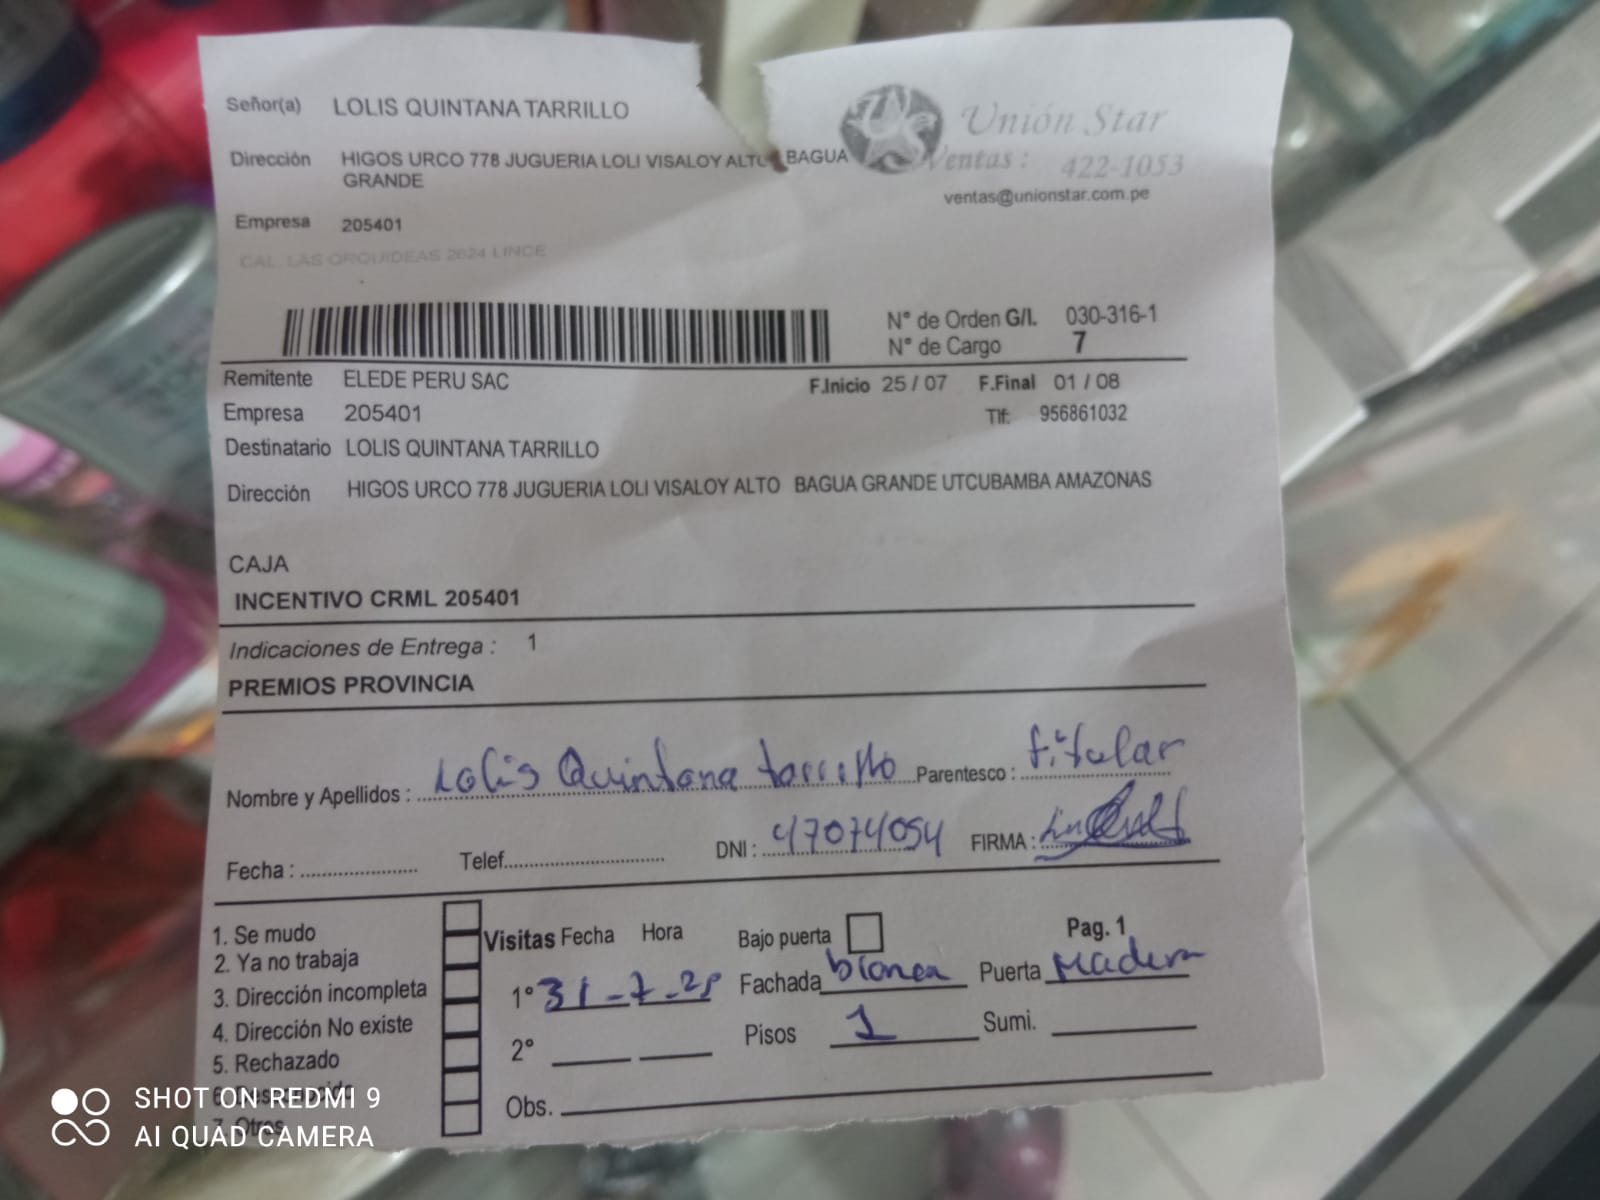 Señor(a) LOLIS QUINTANA TARRILLO
Unión Star
Dirección HIGOS URCO 778 JUGUERIA LOLI VISALOY ALTO BAGUA
GRANDE
Ventas : 422-1053
ventas@unionstar.com.pe
Empresa 205401
CAL. LAS ORQUIDEAS 2624 LINCE
N° de Orden G/I. 030-316-1
N° de Cargo 7
Remitente ELEDE PERU SAC F.Inicio 25 / 07 F.Final 01 / 08
Empresa 205401 Tlf: 956861032
Destinatario LOLIS QUINTANA TARRILLO
Dirección HIGOS URCO 778 JUGUERIA LOLI VISALOY ALTO BAGUA GRANDE UTCUBAMBA AMAZONAS
CAJA
INCENTIVO CRML 205401
Indicaciones de Entrega : 1
PREMIOS PROVINCIA
Nombre y Apellidos : Lolis Quintana tarrillo Parentesco : titular
Fecha : Telef. DNI : 47074054 FIRMA :
1. Se mudo
2. Ya no trabaja
3. Dirección incompleta
4. Dirección No existe
5. Rechazado
7. Otros
Visitas Fecha Hora Bajo puerta Pag. 1
1° 31-7-25 Fachada blanca Puerta Madera
2° Pisos 1 Sumi.
Obs.
SHOT ON REDMI 9
AI QUAD CAMERA